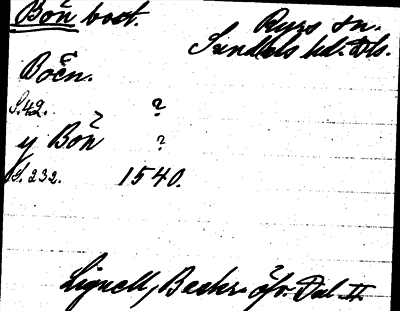 Bön bost. Ryrs sn.
Sundals hd. Dls.
Bočn.
S. 42. ?
y Bön ?
S. 232. 1540.
Lignell, Beskr. öfv. Dal II